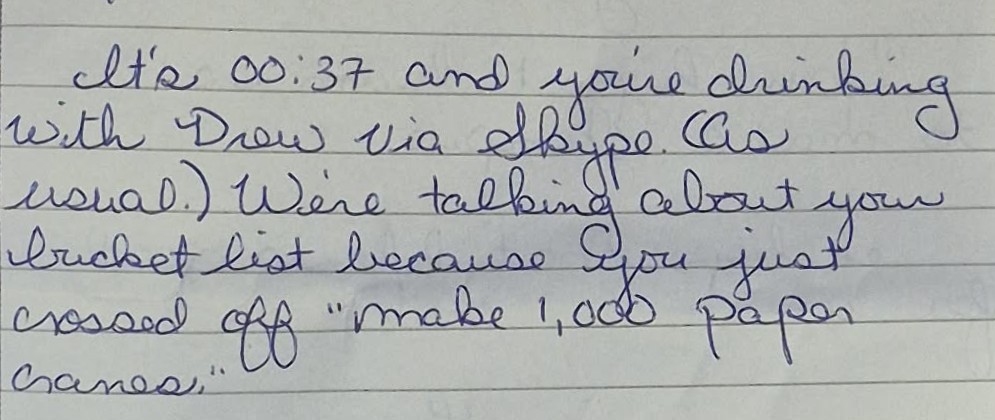 It's 00:37 and you're drinking
with Drew via Skype. (As
usual.) We're talking about your
bucket list because you just
crossed off "make 1,000 paper
cranes."